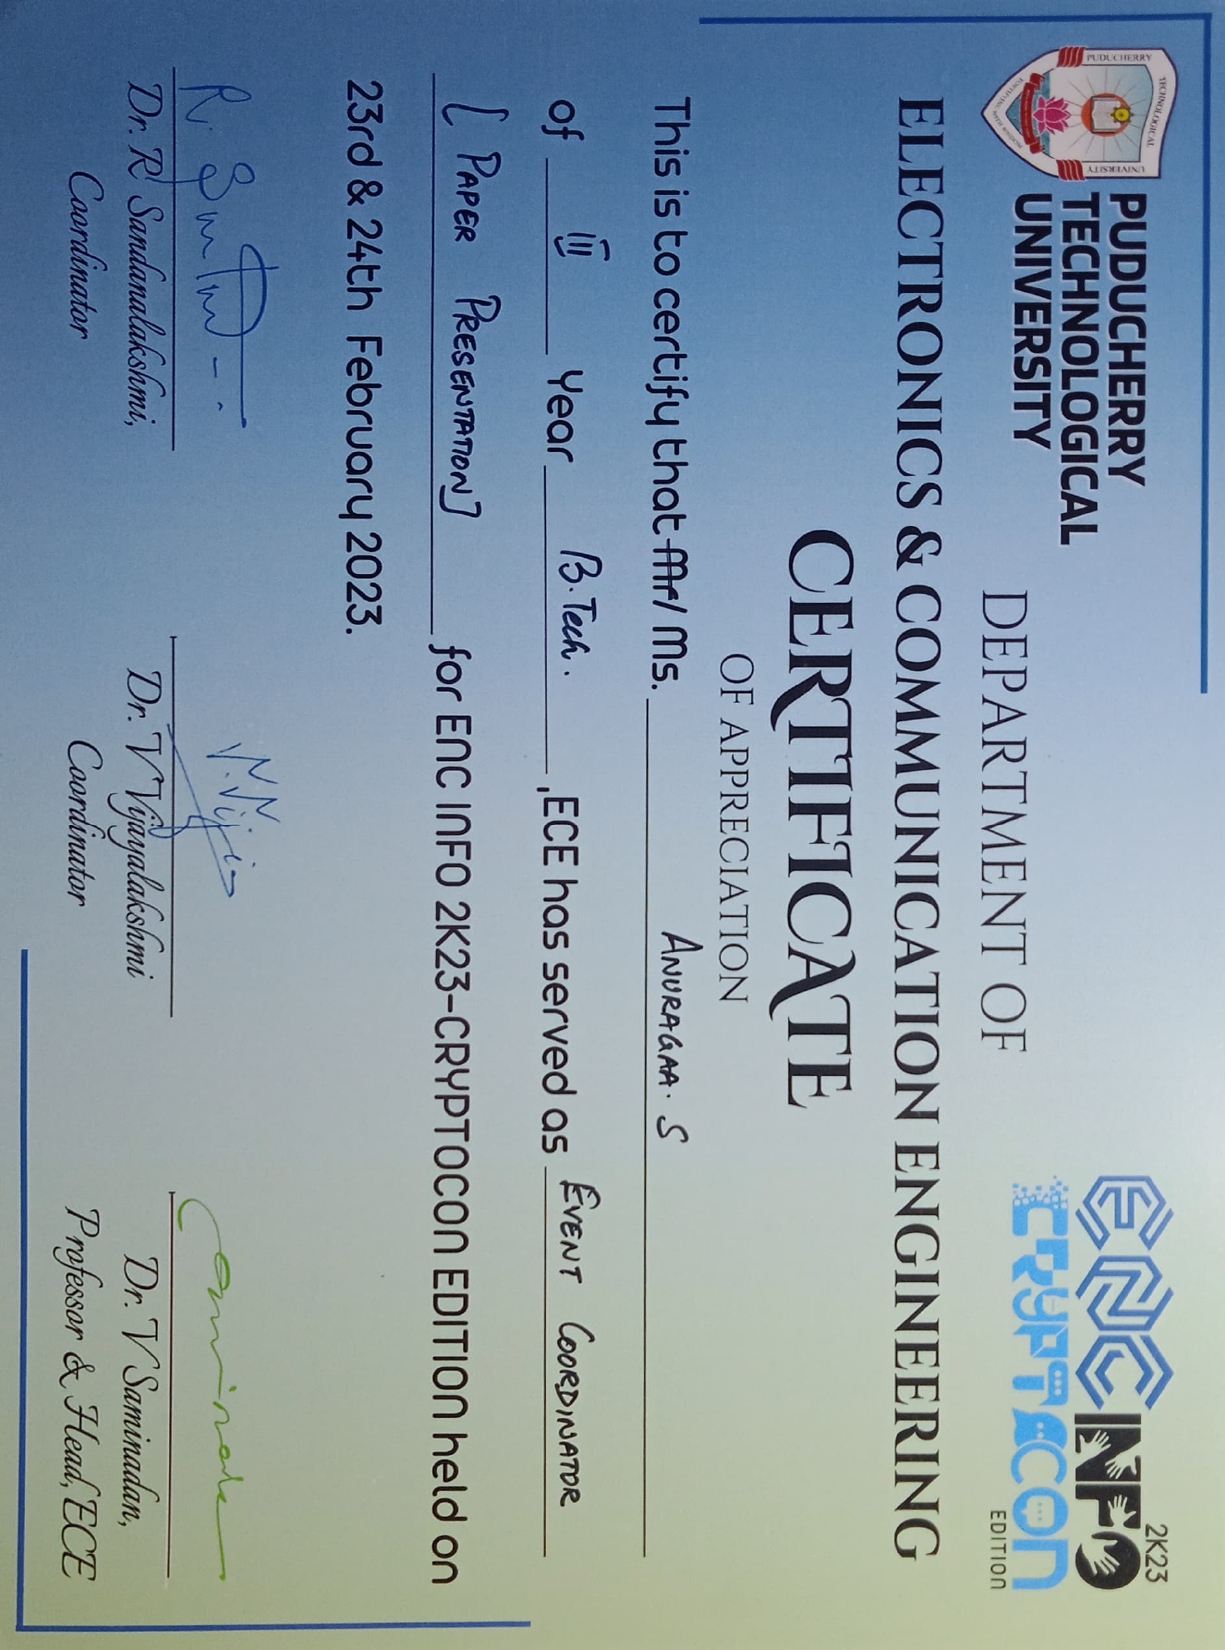 PUDUCHERRY
TECHNOLOGICAL
UNIVERSITY
PUDUCHERRY TECHNOLOGICAL UNIVERSITY
2K23
ENC INFO
CRYPTOCON
EDITION
DEPARTMENT OF
ELECTRONICS & COMMUNICATION ENGINEERING
CERTIFICATE
OF APPRECIATION
This is to certify that Mr/ Ms. ANURAGAA. S
of III Year B.Tech. ,ECE has served as EVENT COORDINATOR
[PAPER PRESENTATION] for ENC INFO 2K23-CRYPTOCON EDITION held on
23rd & 24th February 2023.
Dr. R Sandanalakshmi,
Coordinator
Dr. V Vijayalakshmi
Coordinator
Dr. V Saminadan,
Professor & Head, ECE